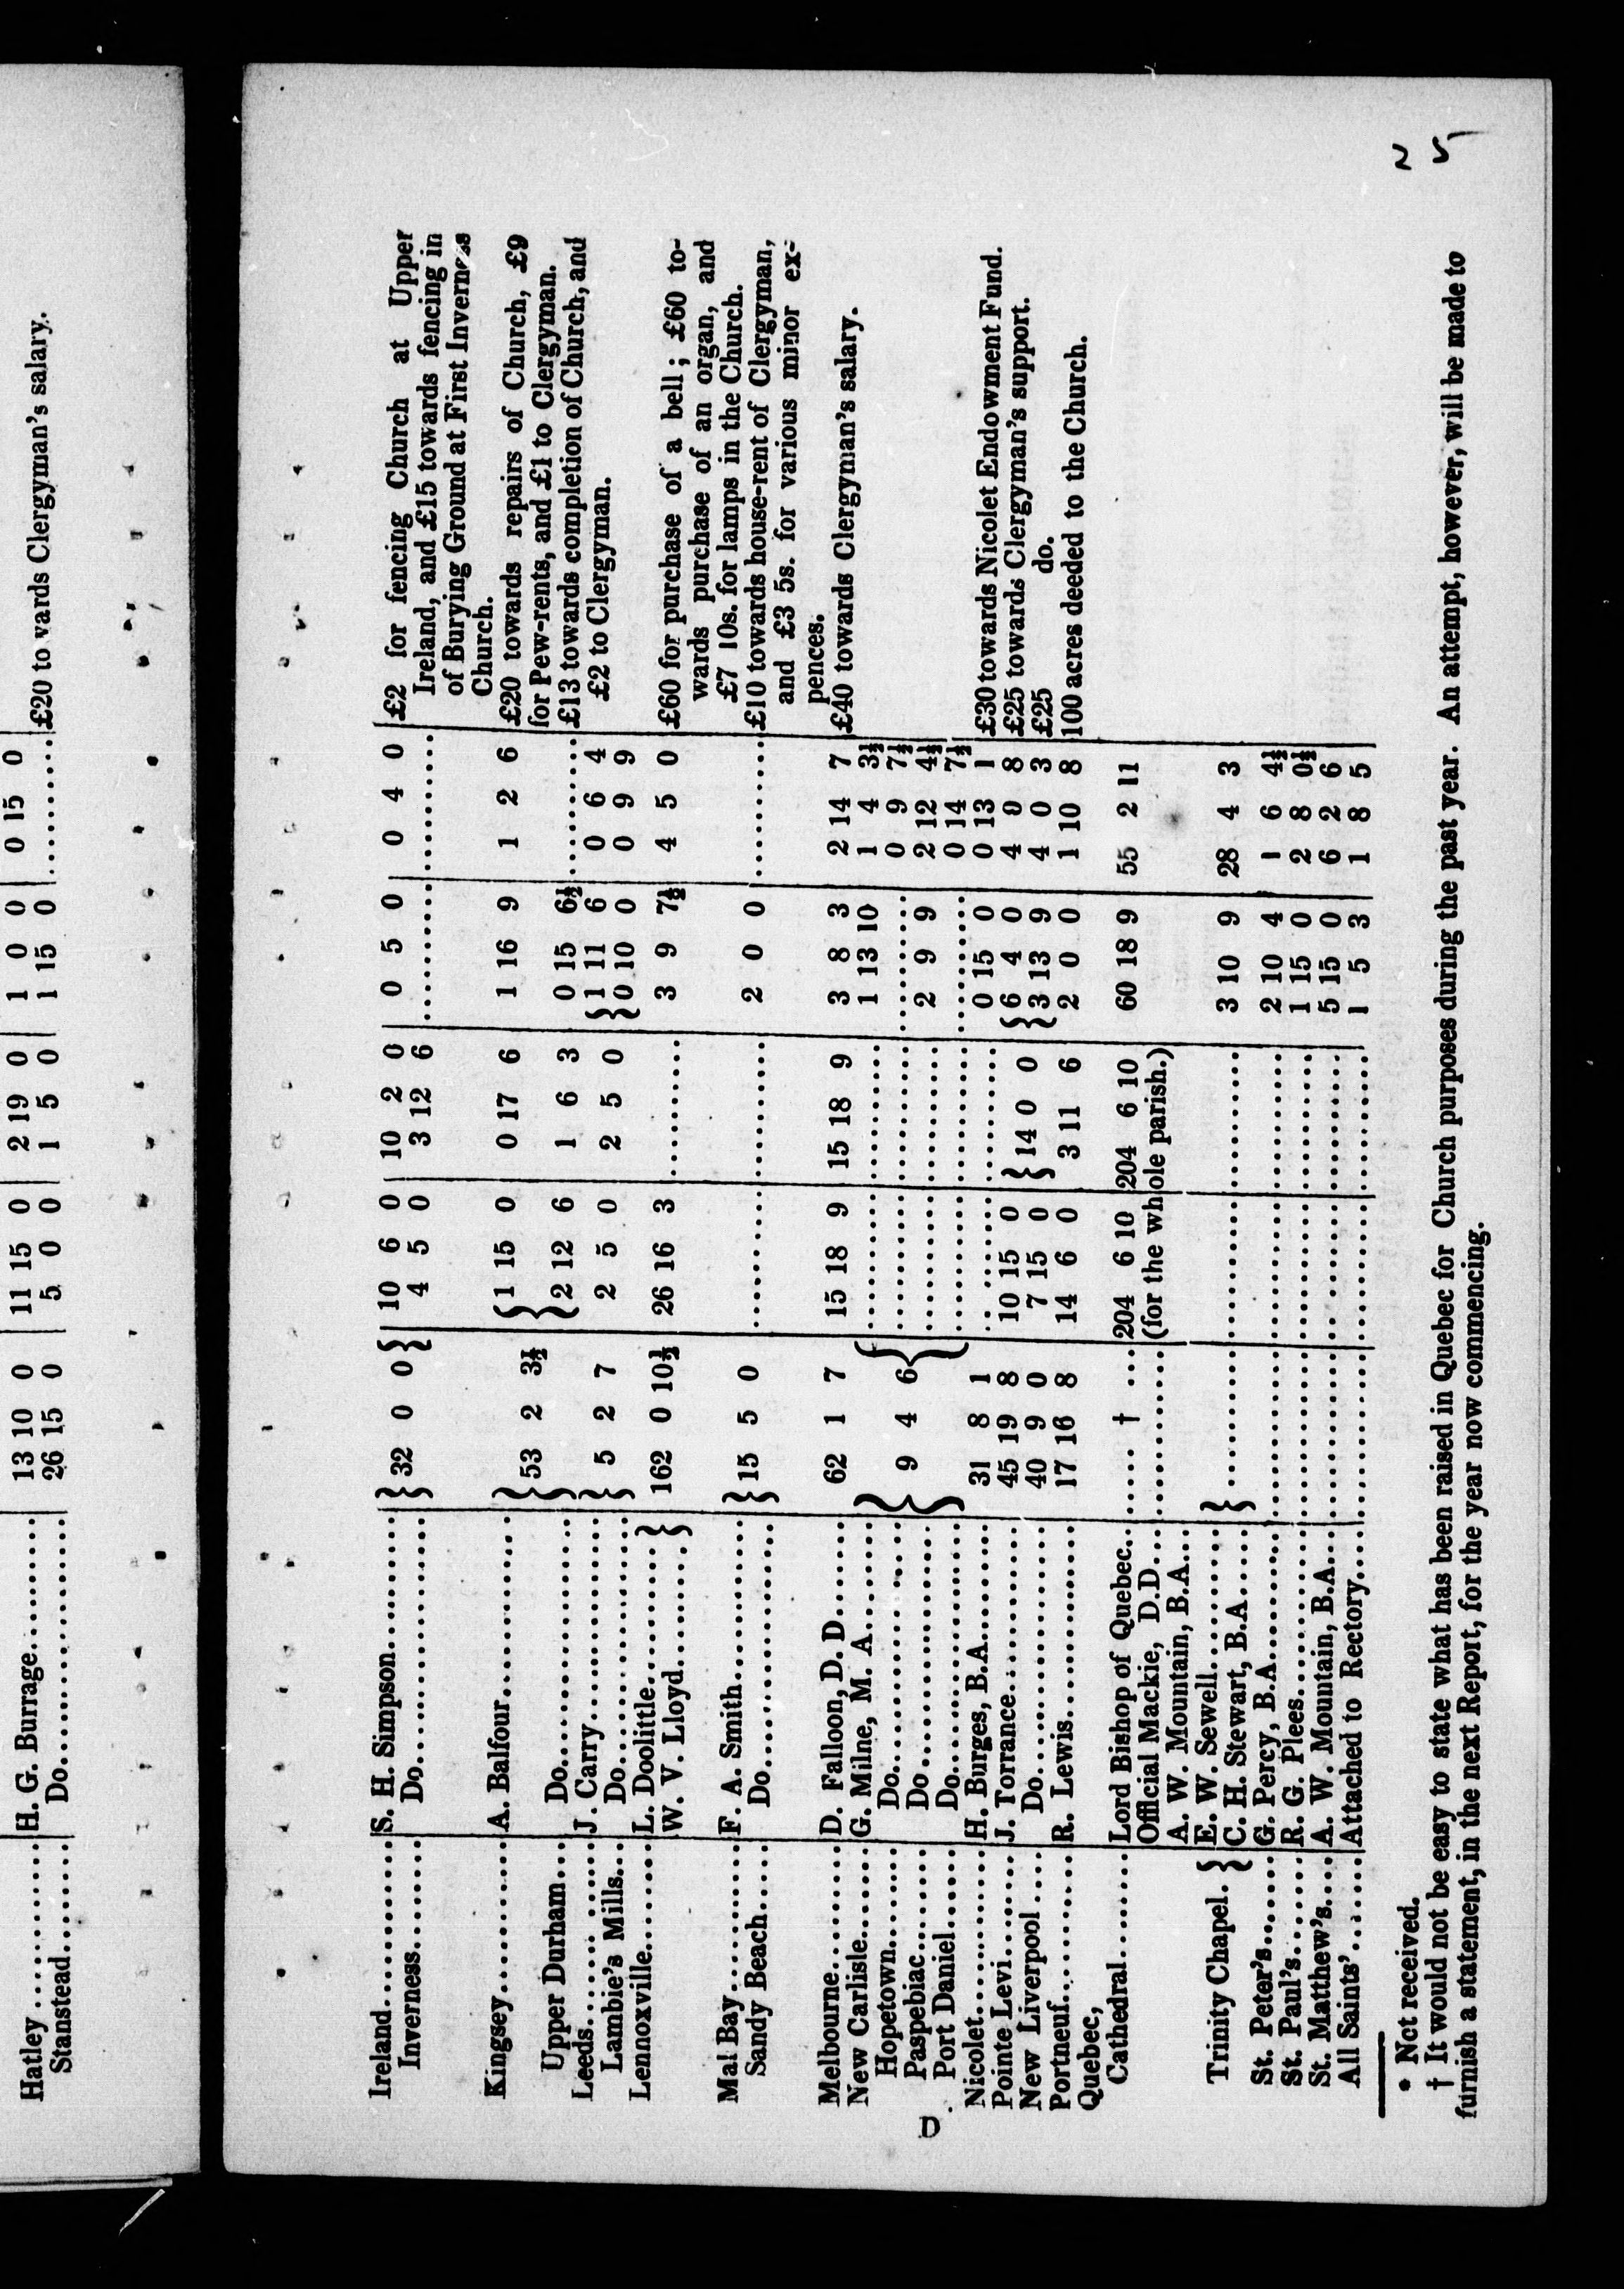 Hatley .......... H. G. Burrage.......... 13 10 0 11 15 0 2 19 0 1 0 0 0 15 0
Stanstead....... Do............... 26 15 0 5 0 0 1 5 0 1 15 0 .......... £20 to vards Clergyman's salary.
Ireland........... S. H. Simpson.......... } 32 0 0 } 10 6 0 10 2 0 0 5 0 0 4 0 £2 for fencing Church at Upper
Inverness........ Do............... 4 5 0 3 12 6 .......... .......... Ireland, and £15 towards fencing in
of Burying Ground at First Inverness
Church.
Kingsey.......... A. Balfour............ } 53 2 3½ { 1 15 0 0 17 6 1 16 9 1 2 6 £20 towards repairs of Church, £9
for Pew-rents, and £1 to Clergyman.
Upper Durham... Do............... 2 12 6 1 6 3 0 15 6½ .......... £13 towards completion of Church, and
Leeds........... J. Carry............ } 5 2 7 2 5 0 2 5 0 } 1 11 6 0 6 4 £2 to Clergyman.
Lambie's Mills... Do............... 0 10 0 0 9 9
Lennoxville....... L. Doolittle.......... } 162 0 10½ 26 16 3 .......... 3 9 7½ 4 5 0 £60 for purchase of a bell; £60 to-
W. V. Lloyd.......... wards purchase of an organ, and
£7 10s. for lamps in the Church.
Mal Bay.......... F. A. Smith.......... } 15 5 0 .......... .......... 2 0 0 .......... £10 towards house-rent of Clergyman,
Sandy Beach..... Do............... and £3 5s. for various minor ex-
pences.
Melbourne........ D. Falloon, D. D......... 62 1 7 15 18 9 15 18 9 3 8 3 2 14 7 £40 towards Clergyman's salary.
New Carlisle....... G. Milne, M. A......... } 9 4 6 { .......... .......... 1 13 10 1 4 3½
Hopetown........ Do............... .......... .......... .......... 0 9 7½
Paspebiac........ Do ............... .......... .......... 2 9 9 2 12 4½
Port Daniel...... Do............... .......... .......... .......... 0 14 7½
Nicolet........... H. Burges, B.A......... 31 8 1 .......... .......... 0 15 0 0 13 1 £30 towards Nicolet Endowment Fund.
Pointe Levi....... J. Torrance.......... 45 19 8 10 15 0 } 14 0 0 } 6 4 0 4 0 8 £25 towards Clergyman's support.
New Liverpool .... Do............... 40 9 0 7 15 0 3 13 9 4 0 3 £25 do.
Portneuf.......... R. Lewis............ 17 16 8 14 6 0 3 11 6 2 0 0 1 10 8 100 acres deeded to the Church.
Quebec,
Cathedral........ Lord Bishop of Quebec.. ..... † .... 204 6 10 204 6 10 60 18 9 55 2 11
Official Mackie, D.D.... .......... (for the whole parish.)
A. W. Mountain, B.A...
Trinity Chapel. } E. W. Sewell.......... } .......... .......... .......... 3 10 9 28 4 3
C. H. Stewart, B.A.....
St. Peter's....... G. Percy, B.A......... .......... .......... .......... 2 10 4 1 6 4½
St. Paul's....... R. G. Plees.......... .......... .......... .......... 1 15 0 2 8 0½
St. Matthew's.... A. W. Mountain, B.A.... .......... .......... .......... 5 15 0 6 2 6
All Saints' ...... Attached to Rectory..... .......... .......... .......... 1 5 3 1 8 5
* Not received.
† It would not be easy to state what has been raised in Quebec for Church purposes during the past year. An attempt, however, will be made to
furnish a statement, in the next Report, for the year now commencing.
D
25